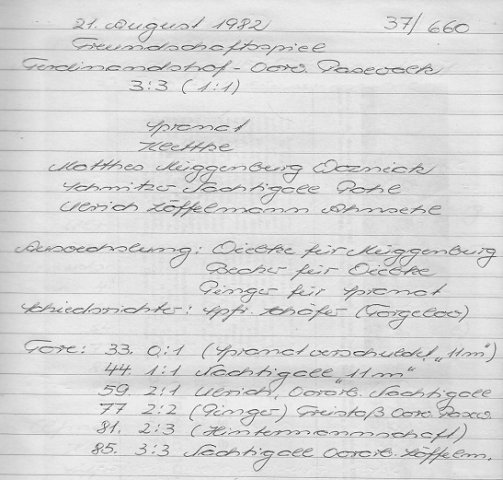 21. August 1982 37/660
Freundschaftsspiel
Ferdinandshof - Vorw. Pasewalk
3:3 (1:1)
Spranat
Klettke
Matthes Müggenburg Woznick
Schmitzer Nachtigall Pohl
Ulrich Löffelmann
Auswechslung: Diebke für Müggenburg
Becker für Diebke
Pinger für Spranat
Schiedsrichter: Spfr. Schäfer (Torgelow)
Tore: 33. 0:1 (Spranat verschuldet „11m")
44. 1:1 Nachtigall "11m"
59. 2:1 Ulrich, Vorarb. Nachtigall
77 2:2 (Pinger) Freistoß Vorw. Pasew.
81. 2:3 (Hintermannschaft)
85. 3:3 Nachtigall Vorarb. Löffelm.